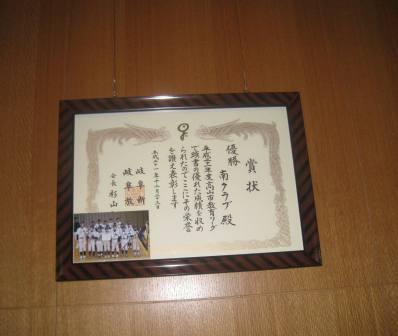 賞状
優勝
南クラブ殿
平成二十一年度高山市教育リーグ
で頭書の優れた成績を収め
られたのでここにその栄誉
を讃え表彰します
平成二十一年十二月二十三日
岐阜新
岐阜放
会長 杉山